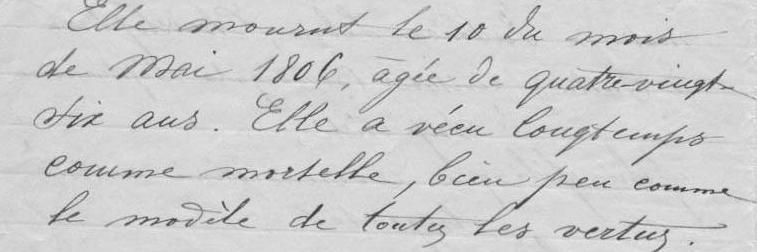 Elle mourut le 10 du mois
de Mai 1806, âgée de quatre-vingt-
six ans. Elle a vécu longtemps
comme mortelle, bien peu comme
le modèle de toutes les vertus.